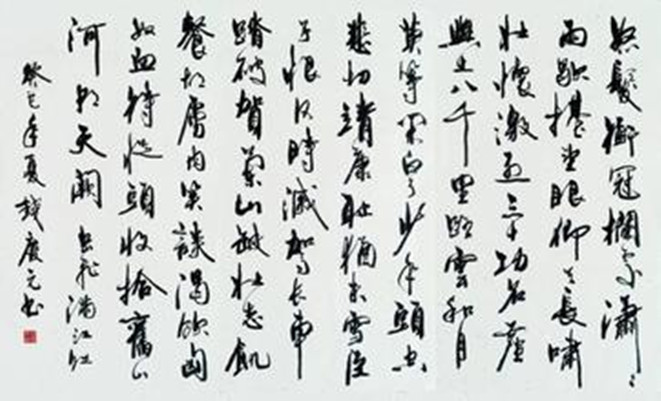 怒髮衝冠欄處瀟々
雨歇抬望眼仰天長嘯
壯懷激烈三十功名塵
與土八千里路雲和月
莫等閑白了少年頭空
悲切靖康耻猶未雪臣
子恨何時滅駕長車
踏破賀蘭山缺壯志飢
餐胡虜肉笑談渴飲匈
奴血待從頭收拾舊山
河朝天闕 岳飛滿江紅
癸巳年夏錢元書